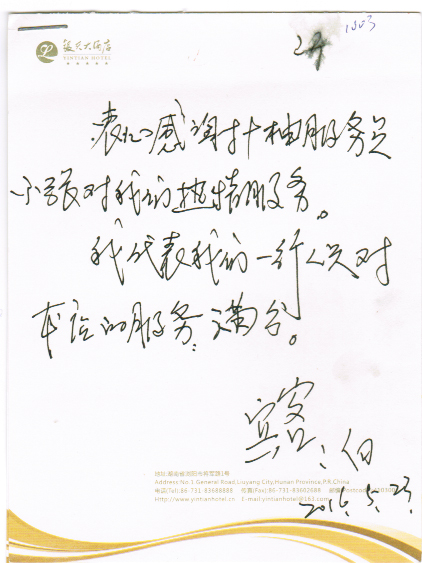 1303
银天大酒店
YINTIAN HOTEL
衷心感谢
服务员
小张对我们热情服务。
我代表我们一行人员对
本店的服务：满意。
宾客：
2016.5.23.
地址:湖南省浏阳市将军路1号
Address:No.1 General Road Liuyang City,Hunan Province,P.R.China
电话(Tel):86-731-83688888 传真(Fax):86-731-83602688
http://www.yintianhotel.cn E-mail:yintianhotel@163.com